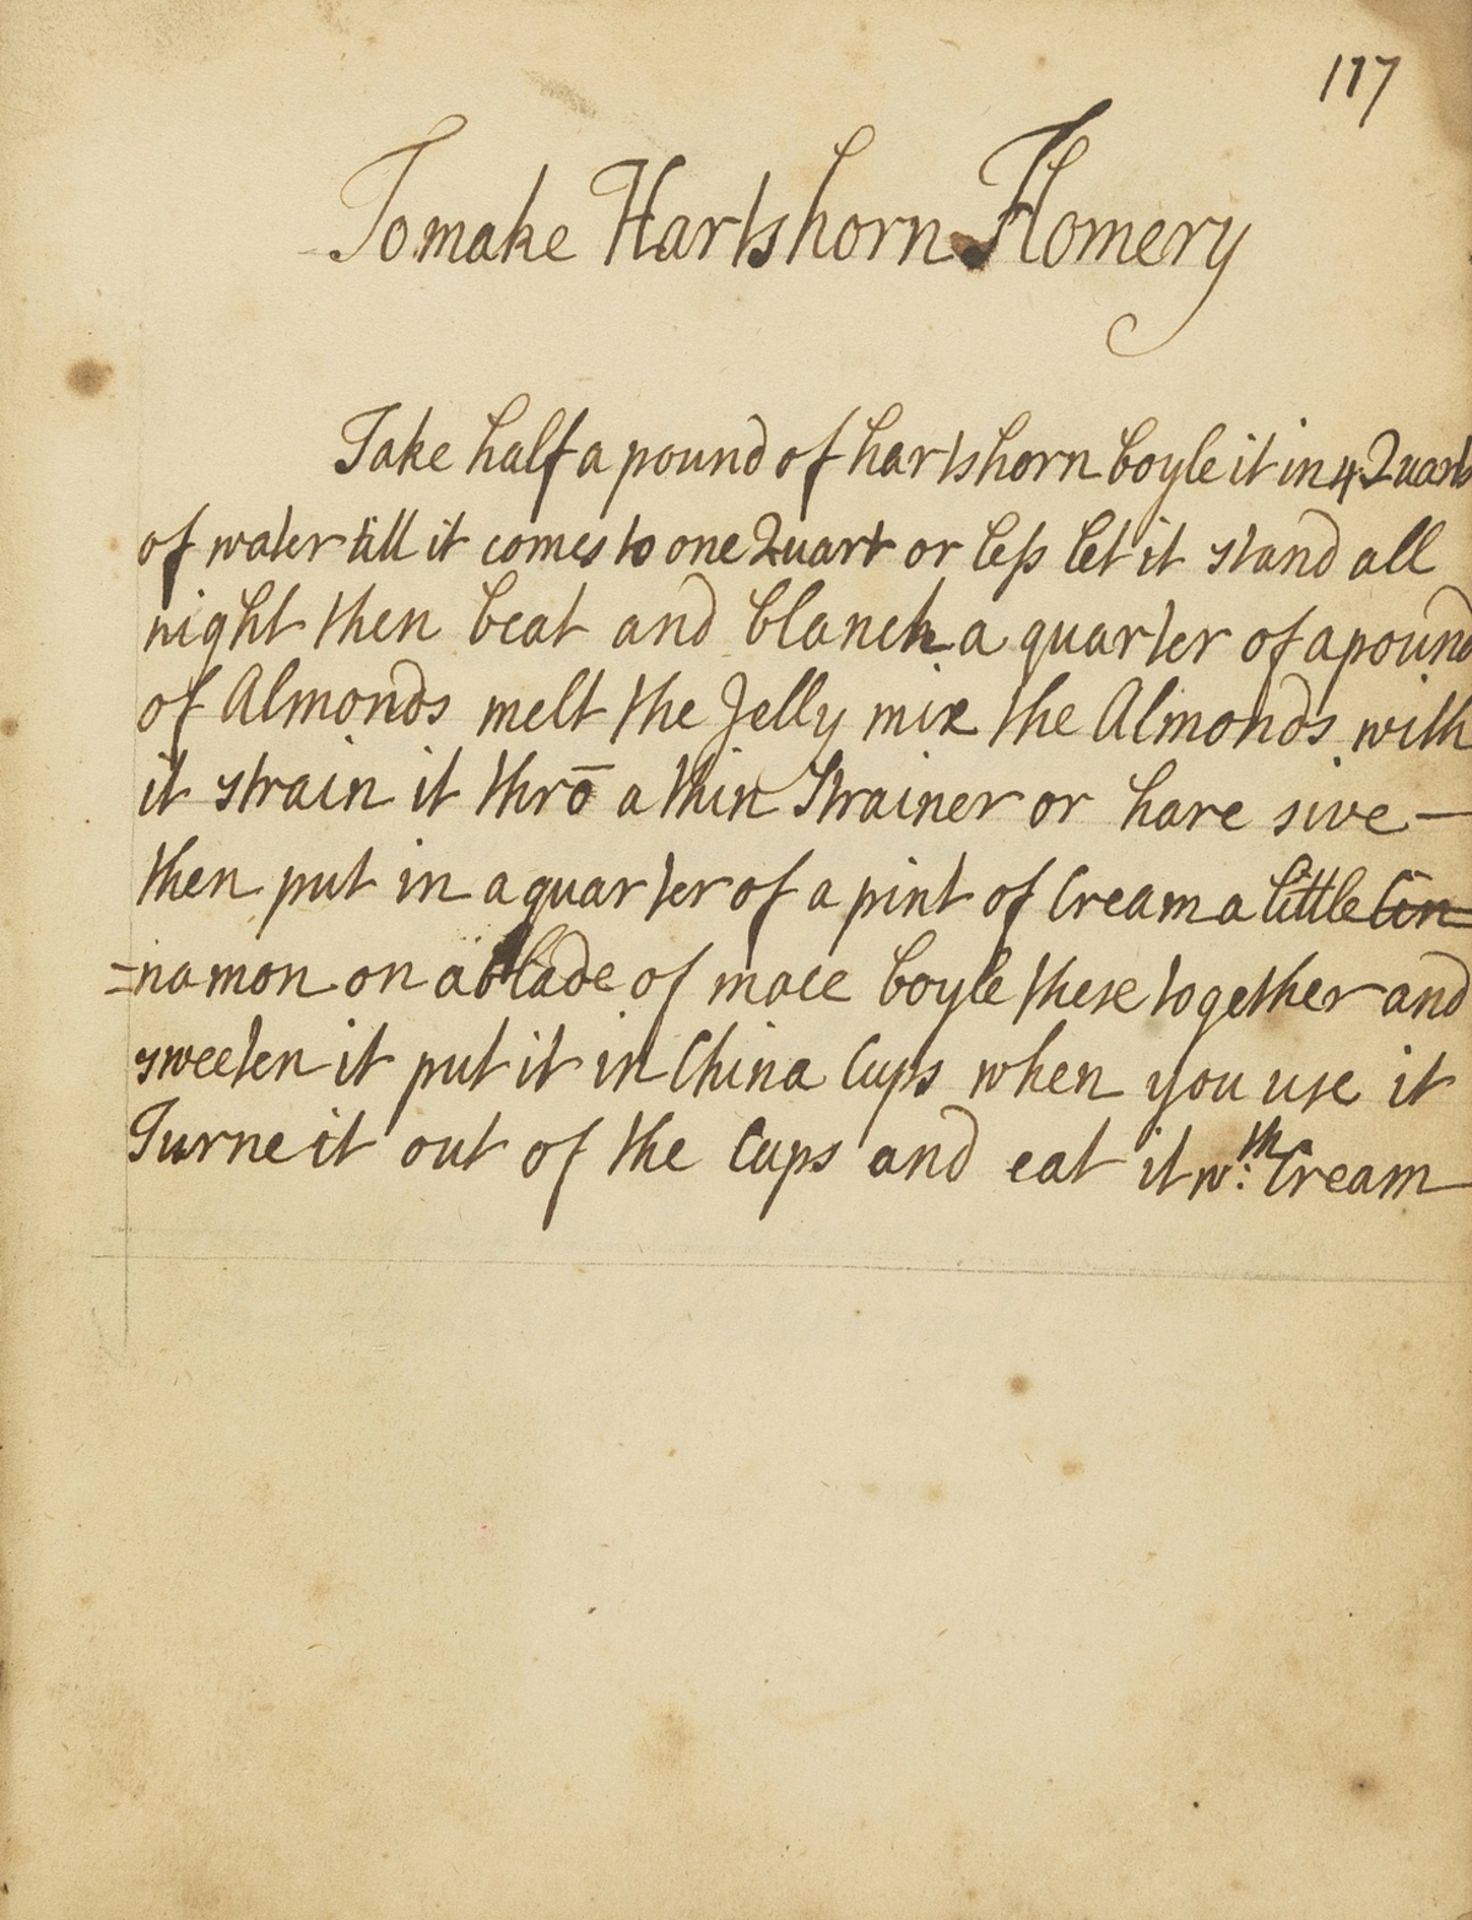 117
To make Hartshorn Flomery
Take half a pound of hartshorn boyle it in 4 Quarts
of water till it comes to one Quart or less let it stand all
night then beat and blanch a quarter of a pound
of Almonds melt the Jelly mix the Almonds with
it strain it thrō a thin Strainer or hare sive —
then put in a quarter of a pint of Cream a little Cin=
=namon on a blade of mace boyle these together and
sweeten it put it in China Cups when you use it
Turne it out of the Cups and eat it w:th Cream